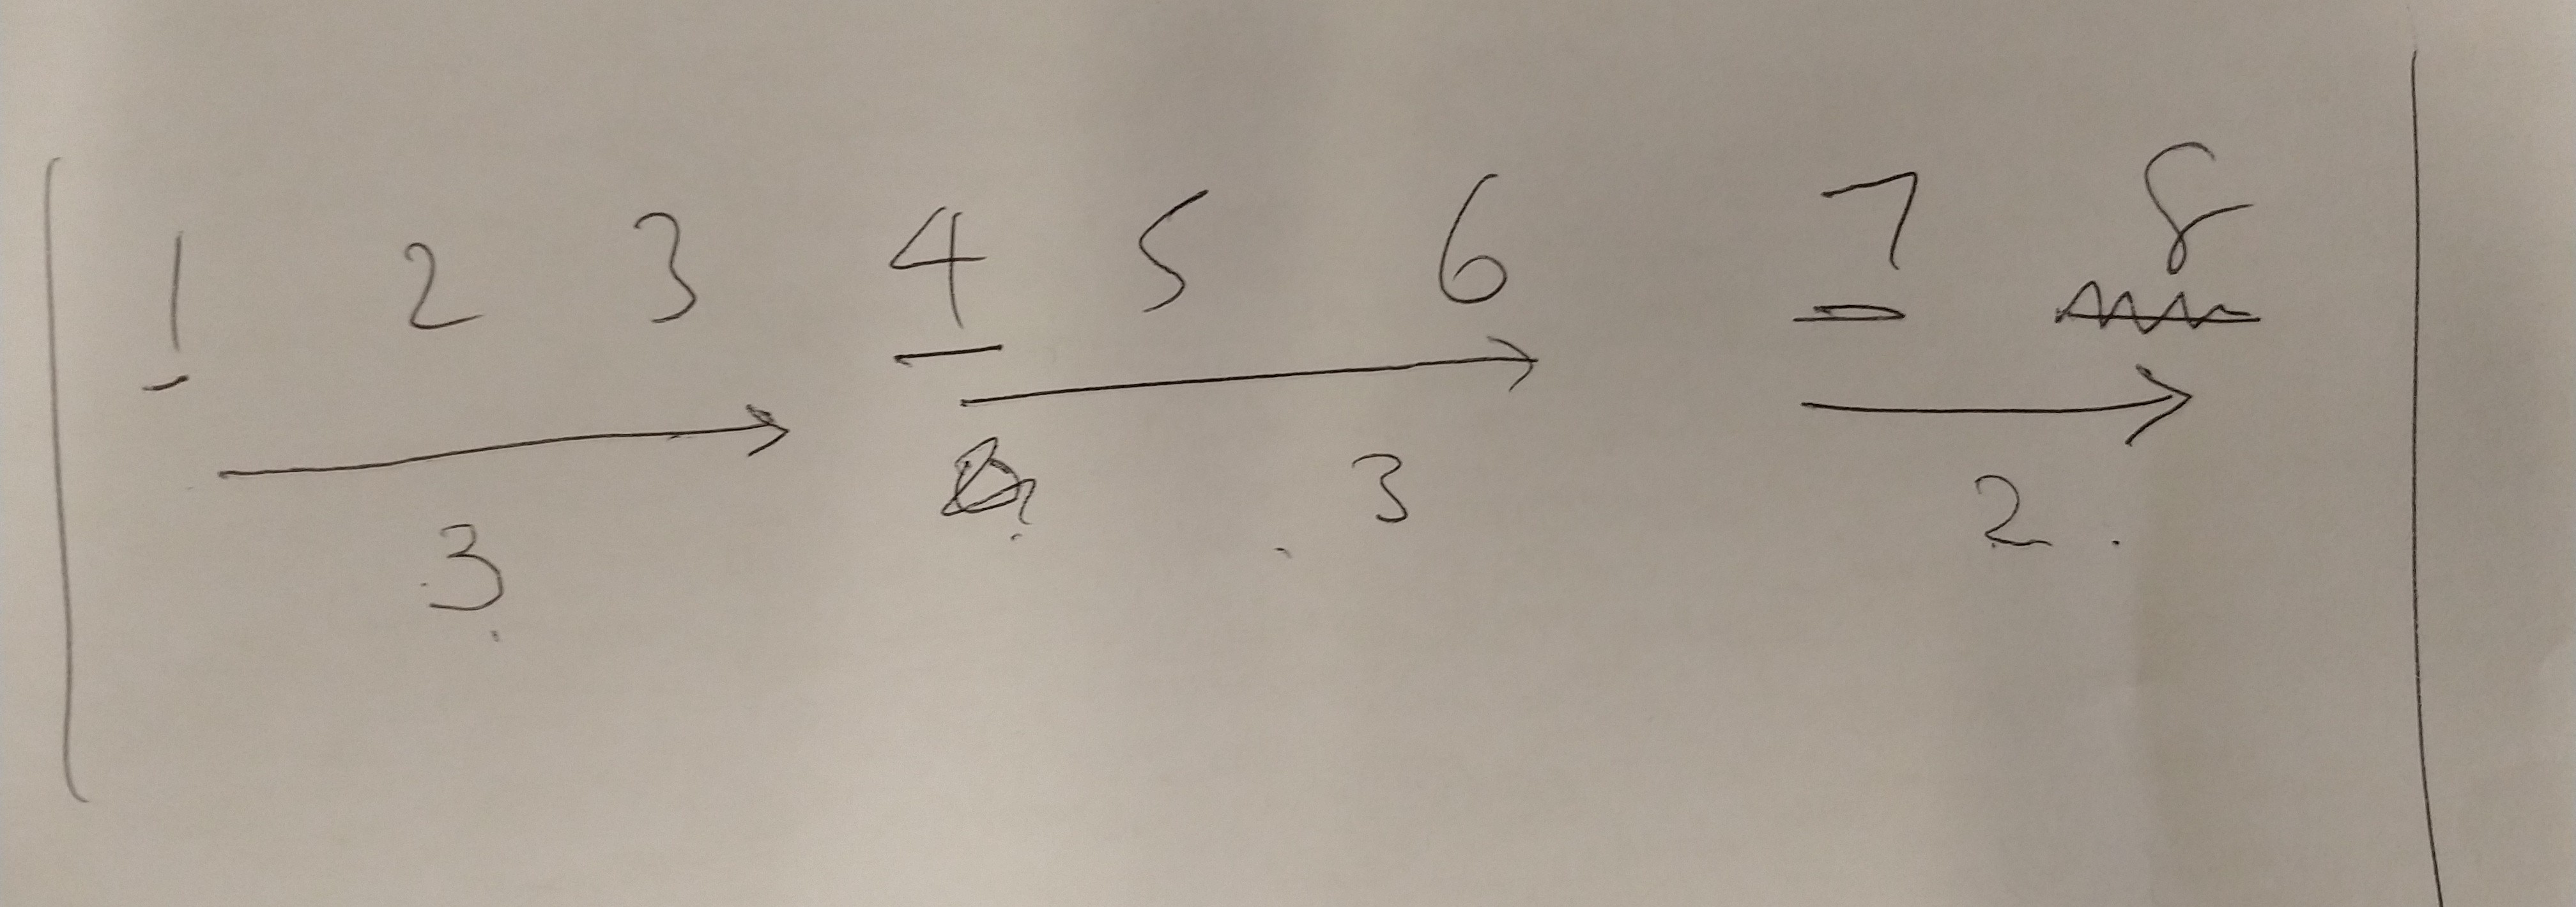 1 2 3 4 5 6 7 8
3 3 2